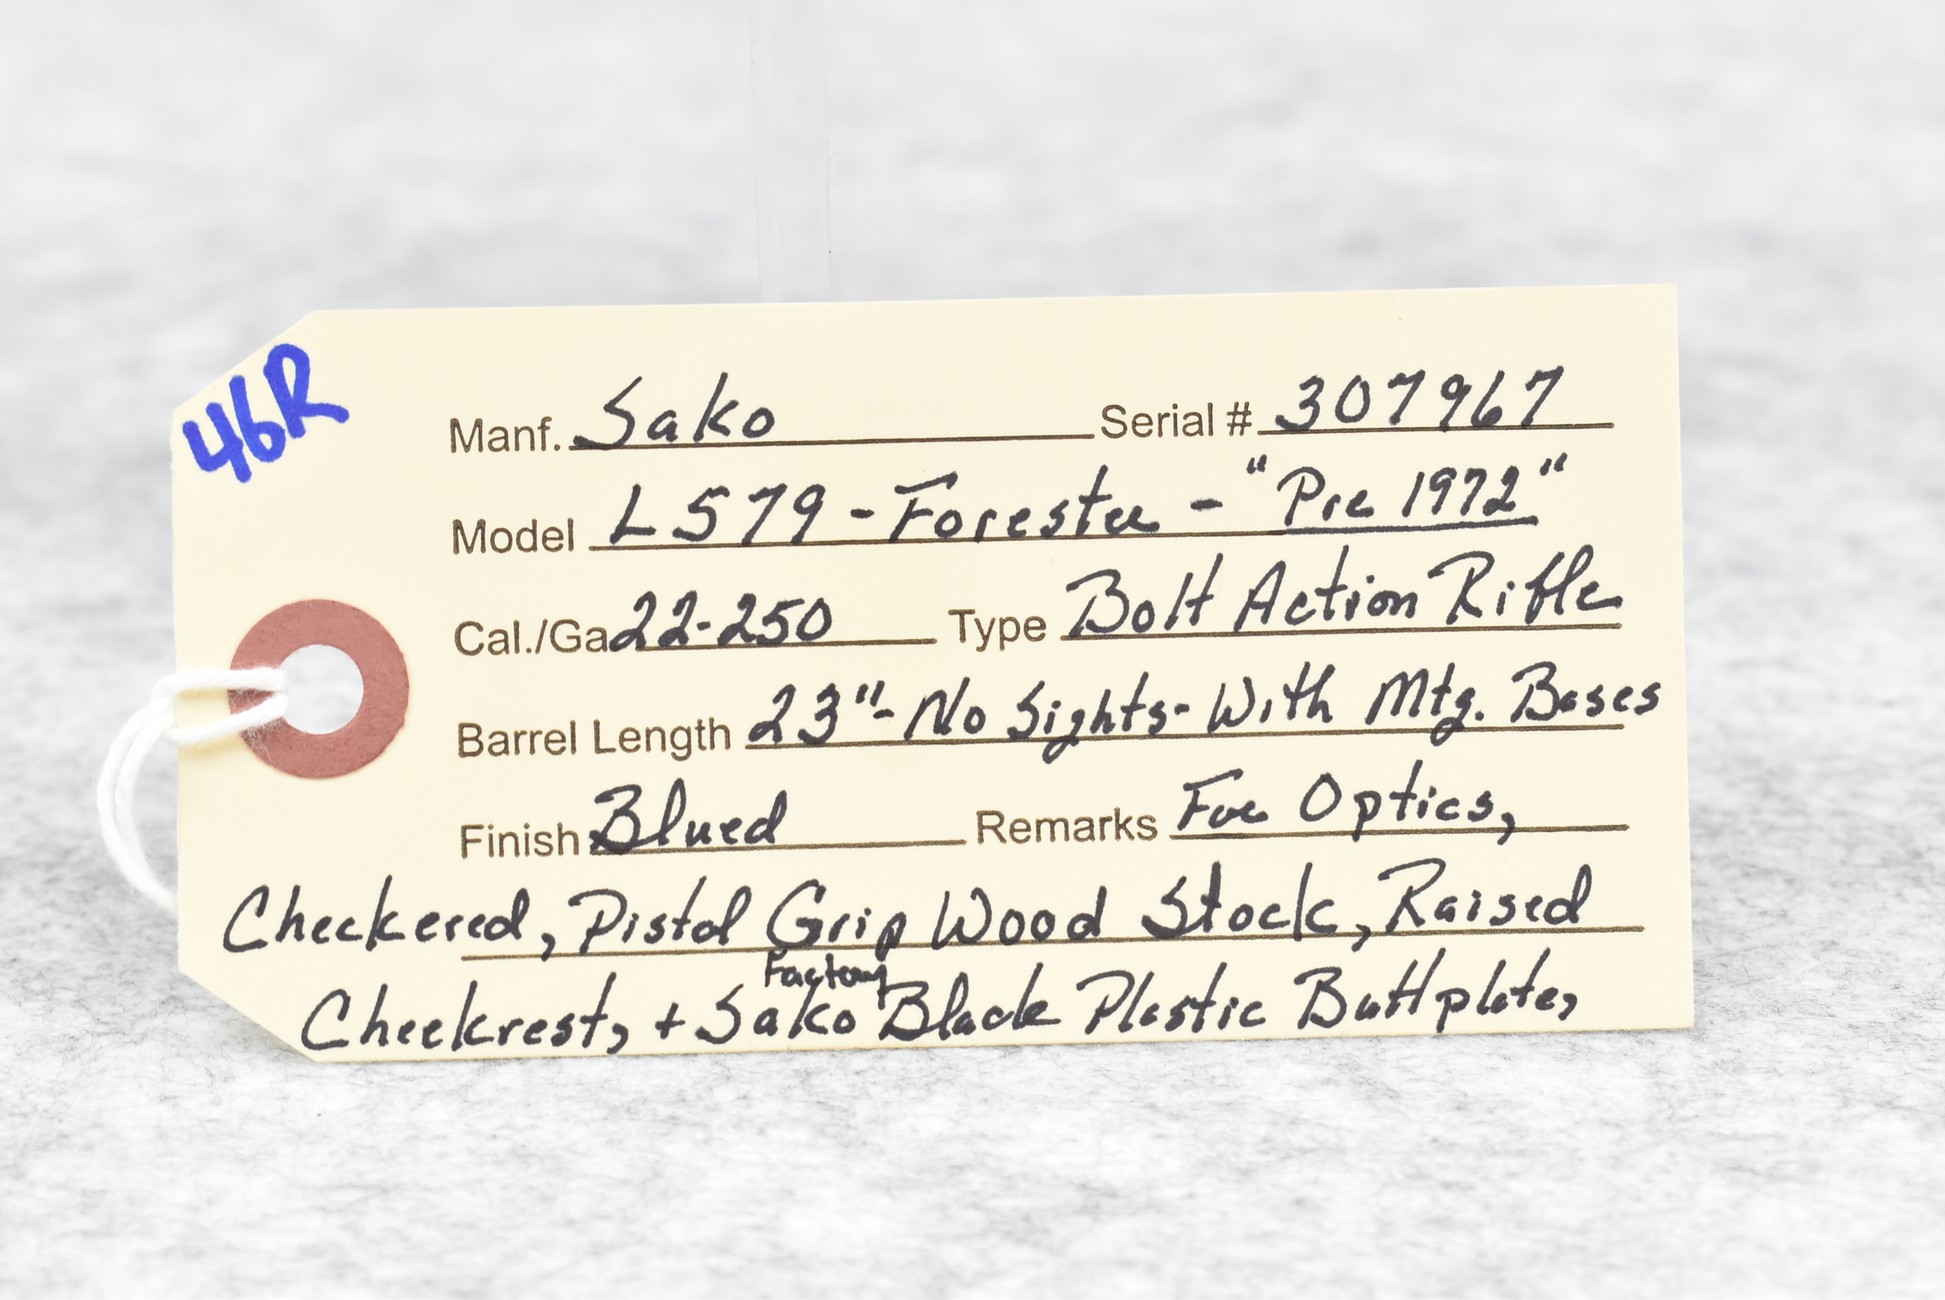 46R
Manf. Sako Serial # 307967
Model L579 - Forester - "Pre 1972"
Cal./Ga 22-250 Type Bolt Action Rifle
Barrel Length 23" - No Sights - With Mtg. Bases
Finish Blued Remarks For Optics,
Checkered, Pistol Grip Wood Stock, Raised
Factory
Cheekrest, + Sako Black Plastic Buttplate,